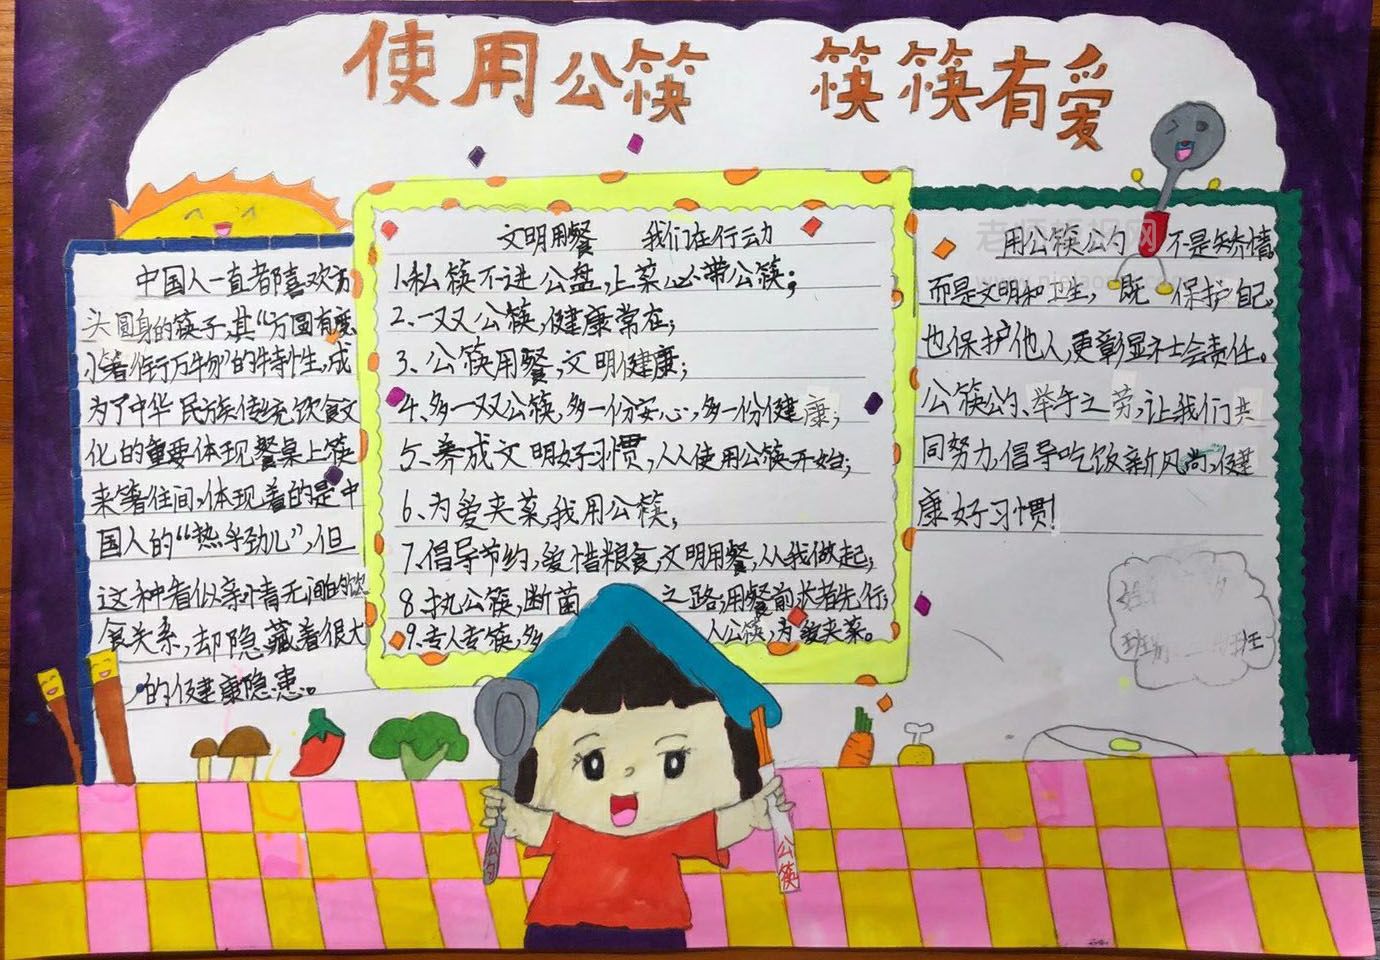 使用公筷 筷筷有爱
中国人一直都喜欢方
头圆身的筷子,其“方圆有度、
小箸衔万物”的特性,成
为了中华民族传统饮食文
化的重要体现餐桌上筷
来箸往间,体现着的是中
国人的“热乎劲儿”,但
这种看似亲情无间的饮
食关系,却隐藏着很大
的健康隐患。
文明用餐 我们在行动
1.私筷不进公盘,上菜必带公筷;
2、一双公筷,健康常在;
3、公筷用餐,文明健康;
4、多一双公筷,多一份安心,多一份健康;
5、养成文明好习惯,从使用公筷开始;
6、为爱夹菜,我用公筷;
7、倡导节约,爱惜粮食,文明用餐,从我做起;
8、执公筷,断菌 之路,用餐前长者先行;
9、专人专筷,多 人公筷,为爱夹菜。
用公筷公勺 不是矫情,
而是文明和卫生, 既 保护自己,
也保护他人,更彰显社会责任。
公筷公勺、举手之劳,让我们共
同努力,倡导吃饭新风尚,健
康好习惯!
老师板报网
班
公勺
公筷